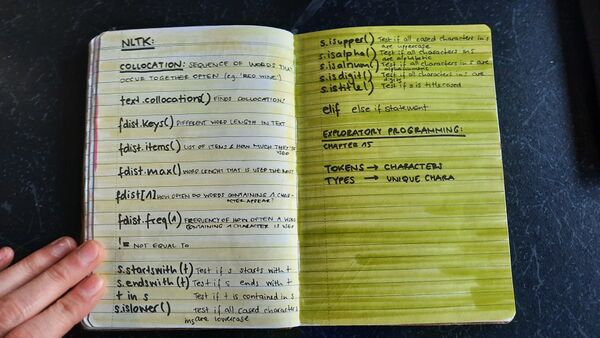 NLTK:
COLLOCATION: SEQUENCE OF WORDS THAT
OCCUR TOGETHER OFTEN (eg. 'RED WINE')
text.collocations() FINDS COLLOCATIONS
fdist.keys() DIFFERENT WORD LENGTH IN TEXT
fdist.items() LIST OF ITEMS & HOW MUCH THEY'RE
USED
fdist.max() WORD LENGHT THAT IS USED THE MOST
fdist[1] HOW OFTEN DO WORDS CONTAINING 1 CHAR-
ACTER APPEAR?
fdist.freq(1) FREQUENCY OF HOW OFTEN A WORD
CONTAINING 1 CHARACTER IS USED
!= NOT EQUAL TO
s.startswith(t) Test if s starts with t
s.endswith(t) Test if s ends with t
t in s Test if t is contained in s
s.islower() Test if all cased characters
in s are lowercase
s.isupper() Test if all cased characters in s
are uppercase
s.isalpha() Test if all characters in s
are alphabetic
s.isalnum() Test if all characters in s are
alphanumeric
s.isdigit() Test if all characters in s are
digits
s.istitle() Test if s is titlecased
elif else if statement
EXPLORATORY PROGRAMMING:
CHAPTER 15
TOKENS → CHARACTERS
TYPES → UNIQUE CHARA